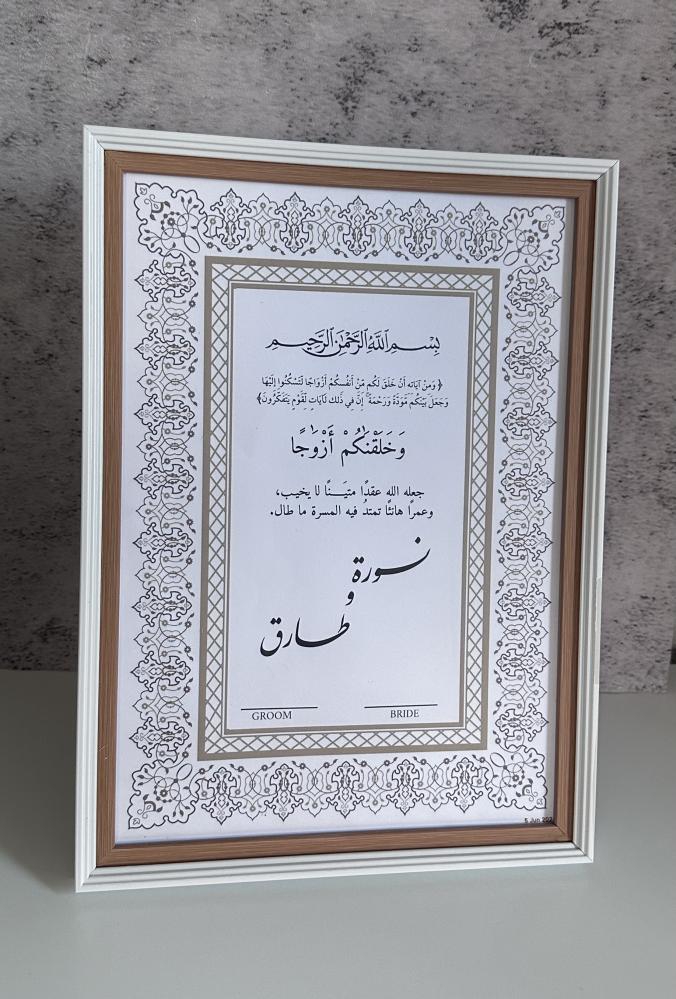 بِسْمِ اللَّهِ الرَّحْمَٰنِ الرَّحِيمِ
﴿ وَمِنْ آيَاتِهِ أَنْ خَلَقَ لَكُم مِّنْ أَنفُسِكُمْ أَزْوَاجًا لِّتَسْكُنُوا إِلَيْهَا
وَجَعَلَ بَيْنَكُم مَّوَدَّةً وَرَحْمَةً ۚ إِنَّ فِي ذَٰلِكَ لَآيَاتٍ لِّقَوْمٍ يَتَفَكَّرُونَ﴾
وَخَلَقْنَٰكُمْ أَزْوَٰجًا
جعله الله عقدًا متيَـــنًا لا يخيب،
وعمرًا هانئًا تمتدُ فيه المسرة ما طال.
نورة
و
طارق
GROOM
BRIDE
5 Jun 202